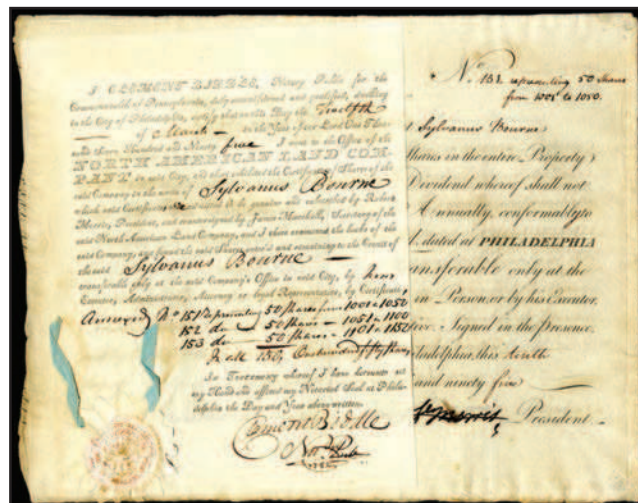 I CLEMENT BIDDLE, Notary Public for the
Commonwealth of Pennsylvania, duly commissioned and qualified, dwelling
in the City of Philadelphia, certify that on this Day the Twelfth
of March in the Year of our Lord One Thou-
sand Seven Hundred and Ninety five I went to the Office of the
NORTH AMERICAN LAND COM-
PANY in said City, and then exhibited the Certificates of Shares of the
said Company in the name of Sylvanus Bourne
which said Certificates to be genuine and executed by Robert
Morris, President, and countersigned by James Marshall, Secretary of the
said North American Land Company, and I then examined the books of the
said Company, and found the said Shares entered and remaining to the Credit of
the said Sylvanus Bourne
transferable only at the said Company's Office in said City, by
Executor, Administrator, Attorney or legal Representative, by Certificate
Annexed No 151 Representing 50 Shares from 1001 to 1050
152 do 50 Shares - 1051 - 1100
153 do 50 Shares - 1101 - 1150
In all 150, One hundred fifty shares
In Testimony whereof I have hereunto set
my Hand and affixed my Notarial Seal at Phila-
delphia the Day and Year above written.
Clement Biddle
Not. Pub
1795
No. 151 representing 50 Shares
from 1001 to 1050.
t Sylvanus Bourne
Shares in the entire Property
Dividend whereof shall not
Annually, conformably to
dated at PHILADELPHIA
ansferable only at the
in Person, or by his Executor,
tive. Signed in the presence
ladelphia, this tenth
and ninety five
Morris President